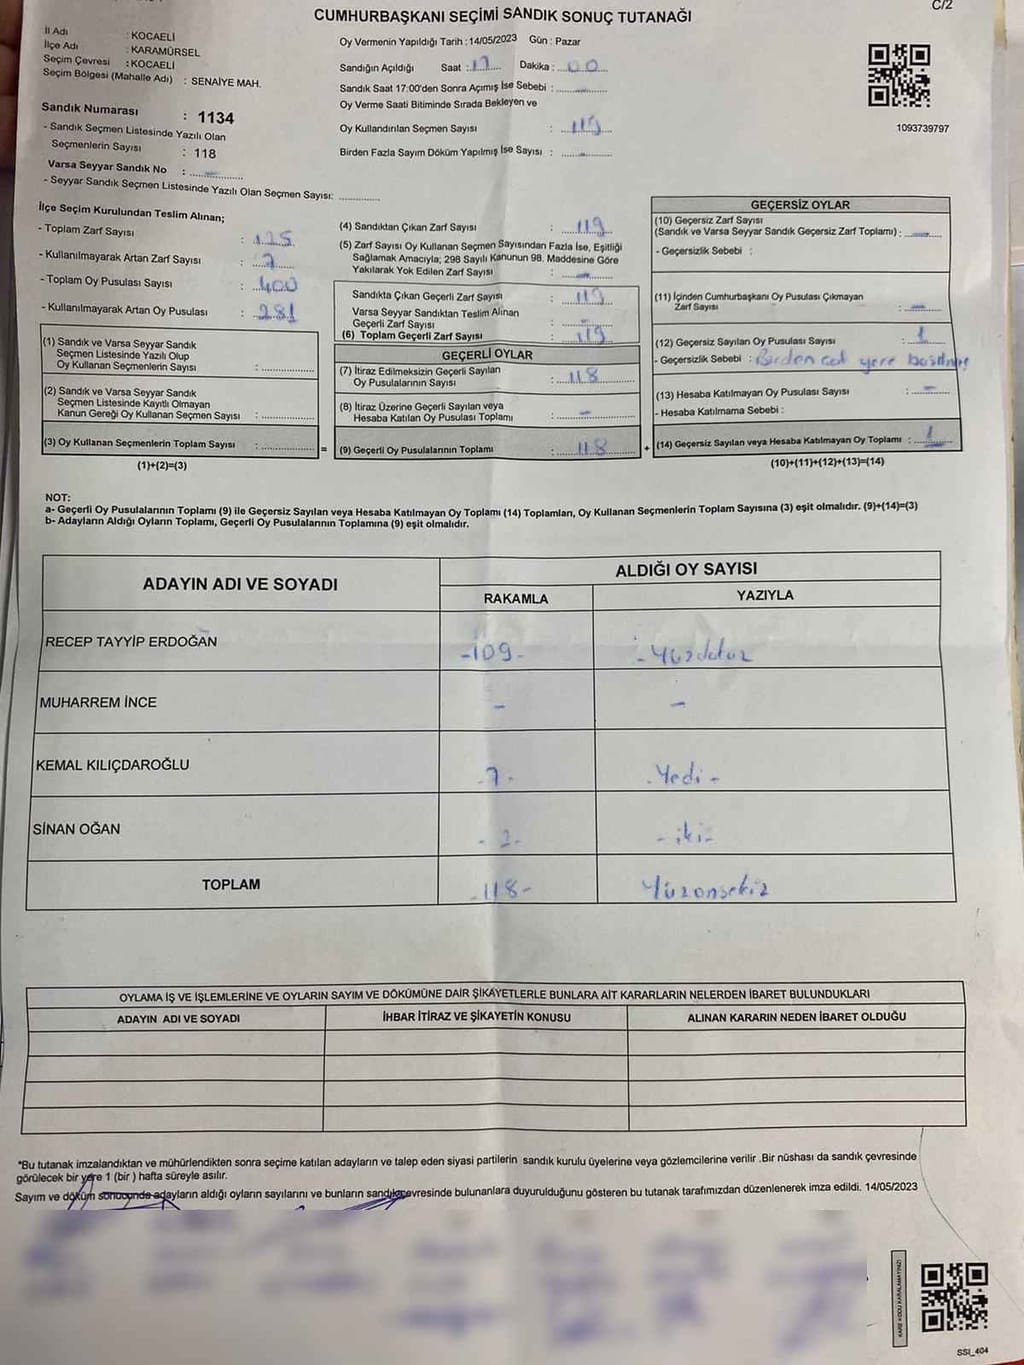 C/2
CUMHURBAŞKANI SEÇİMİ SANDIK SONUÇ TUTANAĞI
İl Adı : KOCAELİ
İlçe Adı : KARAMÜRSEL
Seçim Çevresi : KOCAELİ
Seçim Bölgesi (Mahalle Adı) : SENAİYE MAH.
Sandık Numarası : 1134
- Sandık Seçmen Listesinde Yazılı Olan
Seçmenlerin Sayısı : 118
Varsa Seyyar Sandık No : -
- Seyyar Sandık Seçmen Listesinde Yazılı Olan Seçmen Sayısı: ............
Oy Vermenin Yapıldığı Tarih : 14/05/2023 Gün : Pazar
Sandığın Açıldığı Saat : 17 Dakika : 00
Sandık Saat 17:00'den Sonra Açımış İse Sebebi : -
Oy Verme Saati Bitiminde Sırada Bekleyen ve
Oy Kullandırılan Seçmen Sayısı : 119
Birden Fazla Sayım Döküm Yapılmış İse Sayısı : -
1093739797
İlçe Seçim Kurulundan Teslim Alınan;
- Toplam Zarf Sayısı : 125
- Kullanılmayarak Artan Zarf Sayısı : 7
- Toplam Oy Pusulası Sayısı : 400
- Kullanılmayarak Artan Oy Pusulası : 281
(1) Sandık ve Varsa Seyyar Sandık
Seçmen Listesinde Yazılı Olup
Oy Kullanan Seçmenlerin Sayısı : ............
(2) Sandık ve Varsa Seyyar Sandık
Seçmen Listesinde Kayıtlı Olmayan
Kanun Gereği Oy Kullanan Seçmen Sayısı : ............
(3) Oy Kullanan Seçmenlerin Toplam Sayısı : ............
(1)+(2)=(3)
=
(4) Sandıktan Çıkan Zarf Sayısı : 119
(5) Zarf Sayısı Oy Kullanan Seçmen Sayısından Fazla İse, Eşitliği
Sağlamak Amacıyla; 298 Sayılı Kanunun 98. Maddesine Göre
Yakılarak Yok Edilen Zarf Sayısı : -
Sandıkta Çıkan Geçerli Zarf Sayısı : 119
Varsa Seyyar Sandıktan Teslim Alınan
Geçerli Zarf Sayısı : -
(6) Toplam Geçerli Zarf Sayısı : 119
GEÇERLİ OYLAR
(7) İtiraz Edilmeksizin Geçerli Sayılan
Oy Pusulalarının Sayısı : 118
(8) İtiraz Üzerine Geçerli Sayılan veya
Hesaba Katılan Oy Pusulası Toplamı : -
(9) Geçerli Oy Pusulalarının Toplamı : 118
+
GEÇERSİZ OYLAR
(10) Geçersiz Zarf Sayısı
(Sandık ve Varsa Seyyar Sandık Geçersiz Zarf Toplamı) : -
- Geçersizlik Sebebi :
(11) İçinden Cumhurbaşkanı Oy Pusulası Çıkmayan
Zarf Sayısı : -
(12) Geçersiz Sayılan Oy Pusulası Sayısı : 1
- Geçersizlik Sebebi : Birden çok yere basılmış
(13) Hesaba Katılmayan Oy Pusulası Sayısı : -
- Hesaba Katılmama Sebebi :
(14) Geçersiz Sayılan veya Hesaba Katılmayan Oy Toplamı : 1
(10)+(11)+(12)+(13)=(14)
NOT:
a- Geçerli Oy Pusulalarının Toplamı (9) ile Geçersiz Sayılan veya Hesaba Katılmayan Oy Toplamı (14) Toplamları, Oy Kullanan Seçmenlerin Toplam Sayısına (3) eşit olmalıdır. (9)+(14)=(3)
b- Adayların Aldığı Oyların Toplamı, Geçerli Oy Pusulalarının Toplamına (9) eşit olmalıdır.
ADAYIN ADI VE SOYADI ALDIĞI OY SAYISI
RAKAMLA YAZIYLA
RECEP TAYYİP ERDOĞAN -109- - Yüzdokuz
MUHARREM İNCE - -
KEMAL KILIÇDAROĞLU -7- -Yedi-
SİNAN OĞAN -2- -iki-
TOPLAM -118- Yüzonsekiz
OYLAMA İŞ VE İŞLEMLERİNE VE OYLARIN SAYIM VE DÖKÜMÜNE DAİR ŞİKAYETLERLE BUNLARA AİT KARARLARIN NELERDEN İBARET BULUNDUKLARI
ADAYIN ADI VE SOYADI İHBAR İTİRAZ VE ŞİKAYETİN KONUSU ALINAN KARARIN NEDEN İBARET OLDUĞU
*Bu tutanak imzalandıktan ve mühürlendikten sonra seçime katılan adayların ve talep eden siyasi partilerin sandık kurulu üyelerine veya gözlemcilerine verilir .Bir nüshası da sandık çevresinde
görülecek bir yere 1 (bir ) hafta süreyle asılır.
Sayım ve döküm sonucunda adayların aldığı oyların sayılarını ve bunların sandık çevresinde bulunanlara duyurulduğunu gösteren bu tutanak tarafımızdan düzenlenerek imza edildi. 14/05/2023
KARE KODU KARALAMAYINIZ!
SSI_404